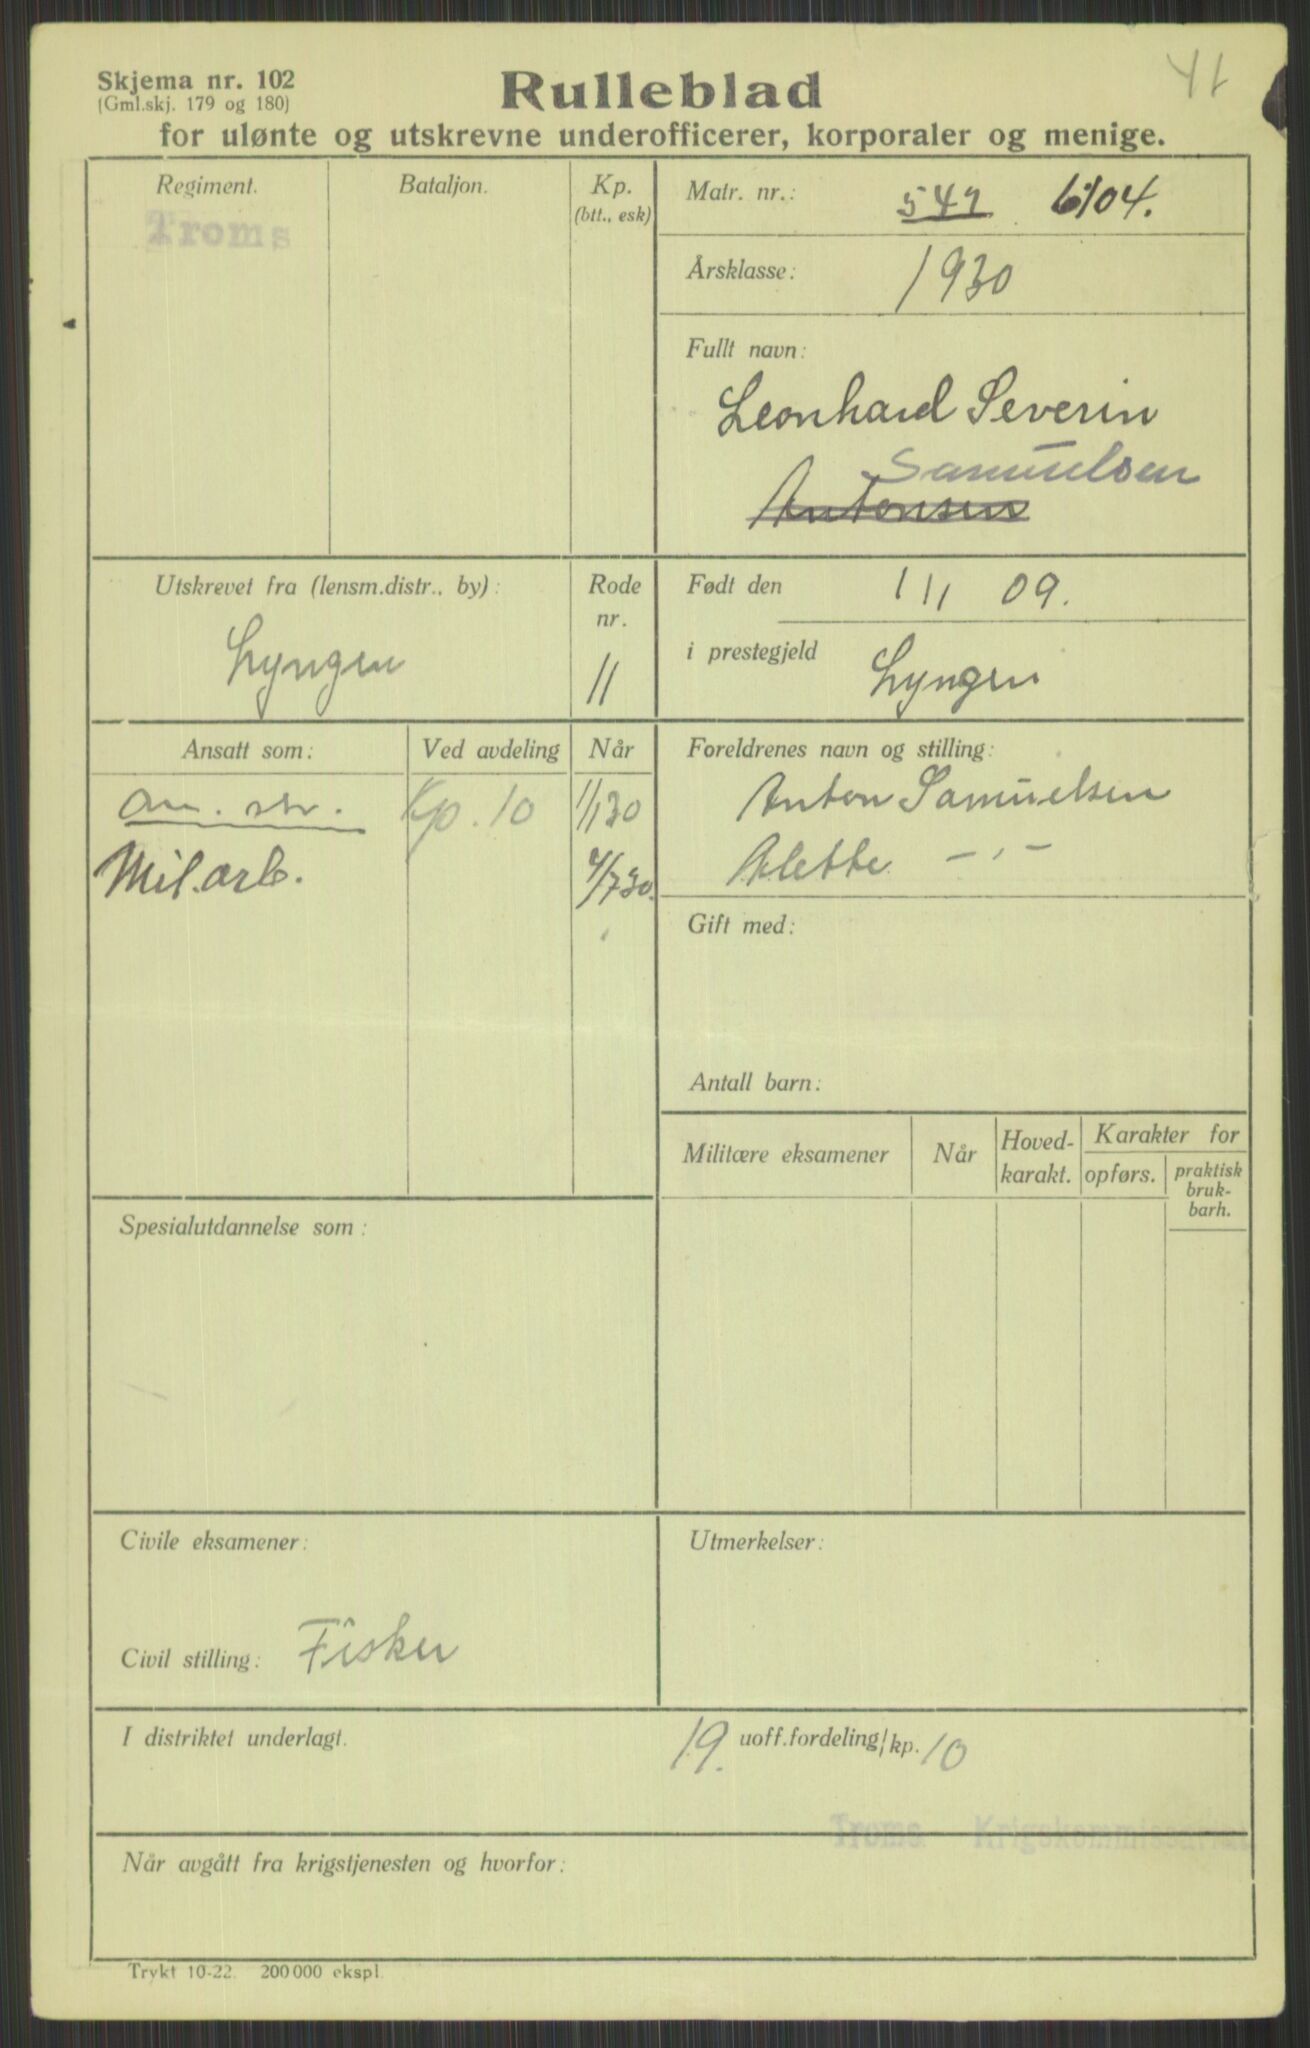 Skjema nr. 102
(Gml.skj. 179 og 180)
Rulleblad
41
for ulønte og utskrevne underofficerer, korporaler og menige.
Regiment.
Troms
Bataljon.
Kp.
(btt., esk)
Matr. nr.: 547 6104.
Årsklasse: 1930
Fullt navn:
Leonhard Severin
Samuelsen
Antonsen
Utskrevet fra (lensm.distr., by):
Lyngen
Rode
nr.
11
Født den 1/1 09.
i prestegjeld Lyngen
Ansatt som:
Ved avdeling
Når
an. str. Kp. 10 1/1 30
Mil. arb. 4/7 30.
Foreldrenes navn og stilling:
Anton Samuelsen
Alette —,—
Gift med:
Antall barn:
Militære eksamener
Når
Hoved-
karakt.
Karakter for
opførs.
praktisk
bruk-
barh.
Spesialutdannelse som:
Civile eksamener:
Civil stilling: Fisker
Utmerkelser:
I distriktet underlagt. 19. uoff.fordeling/kp. 10
Troms Krigskommissariat
Når avgått fra krigstjenesten og hvorfor:
Trykt 10-22. 200 000 ekspl.